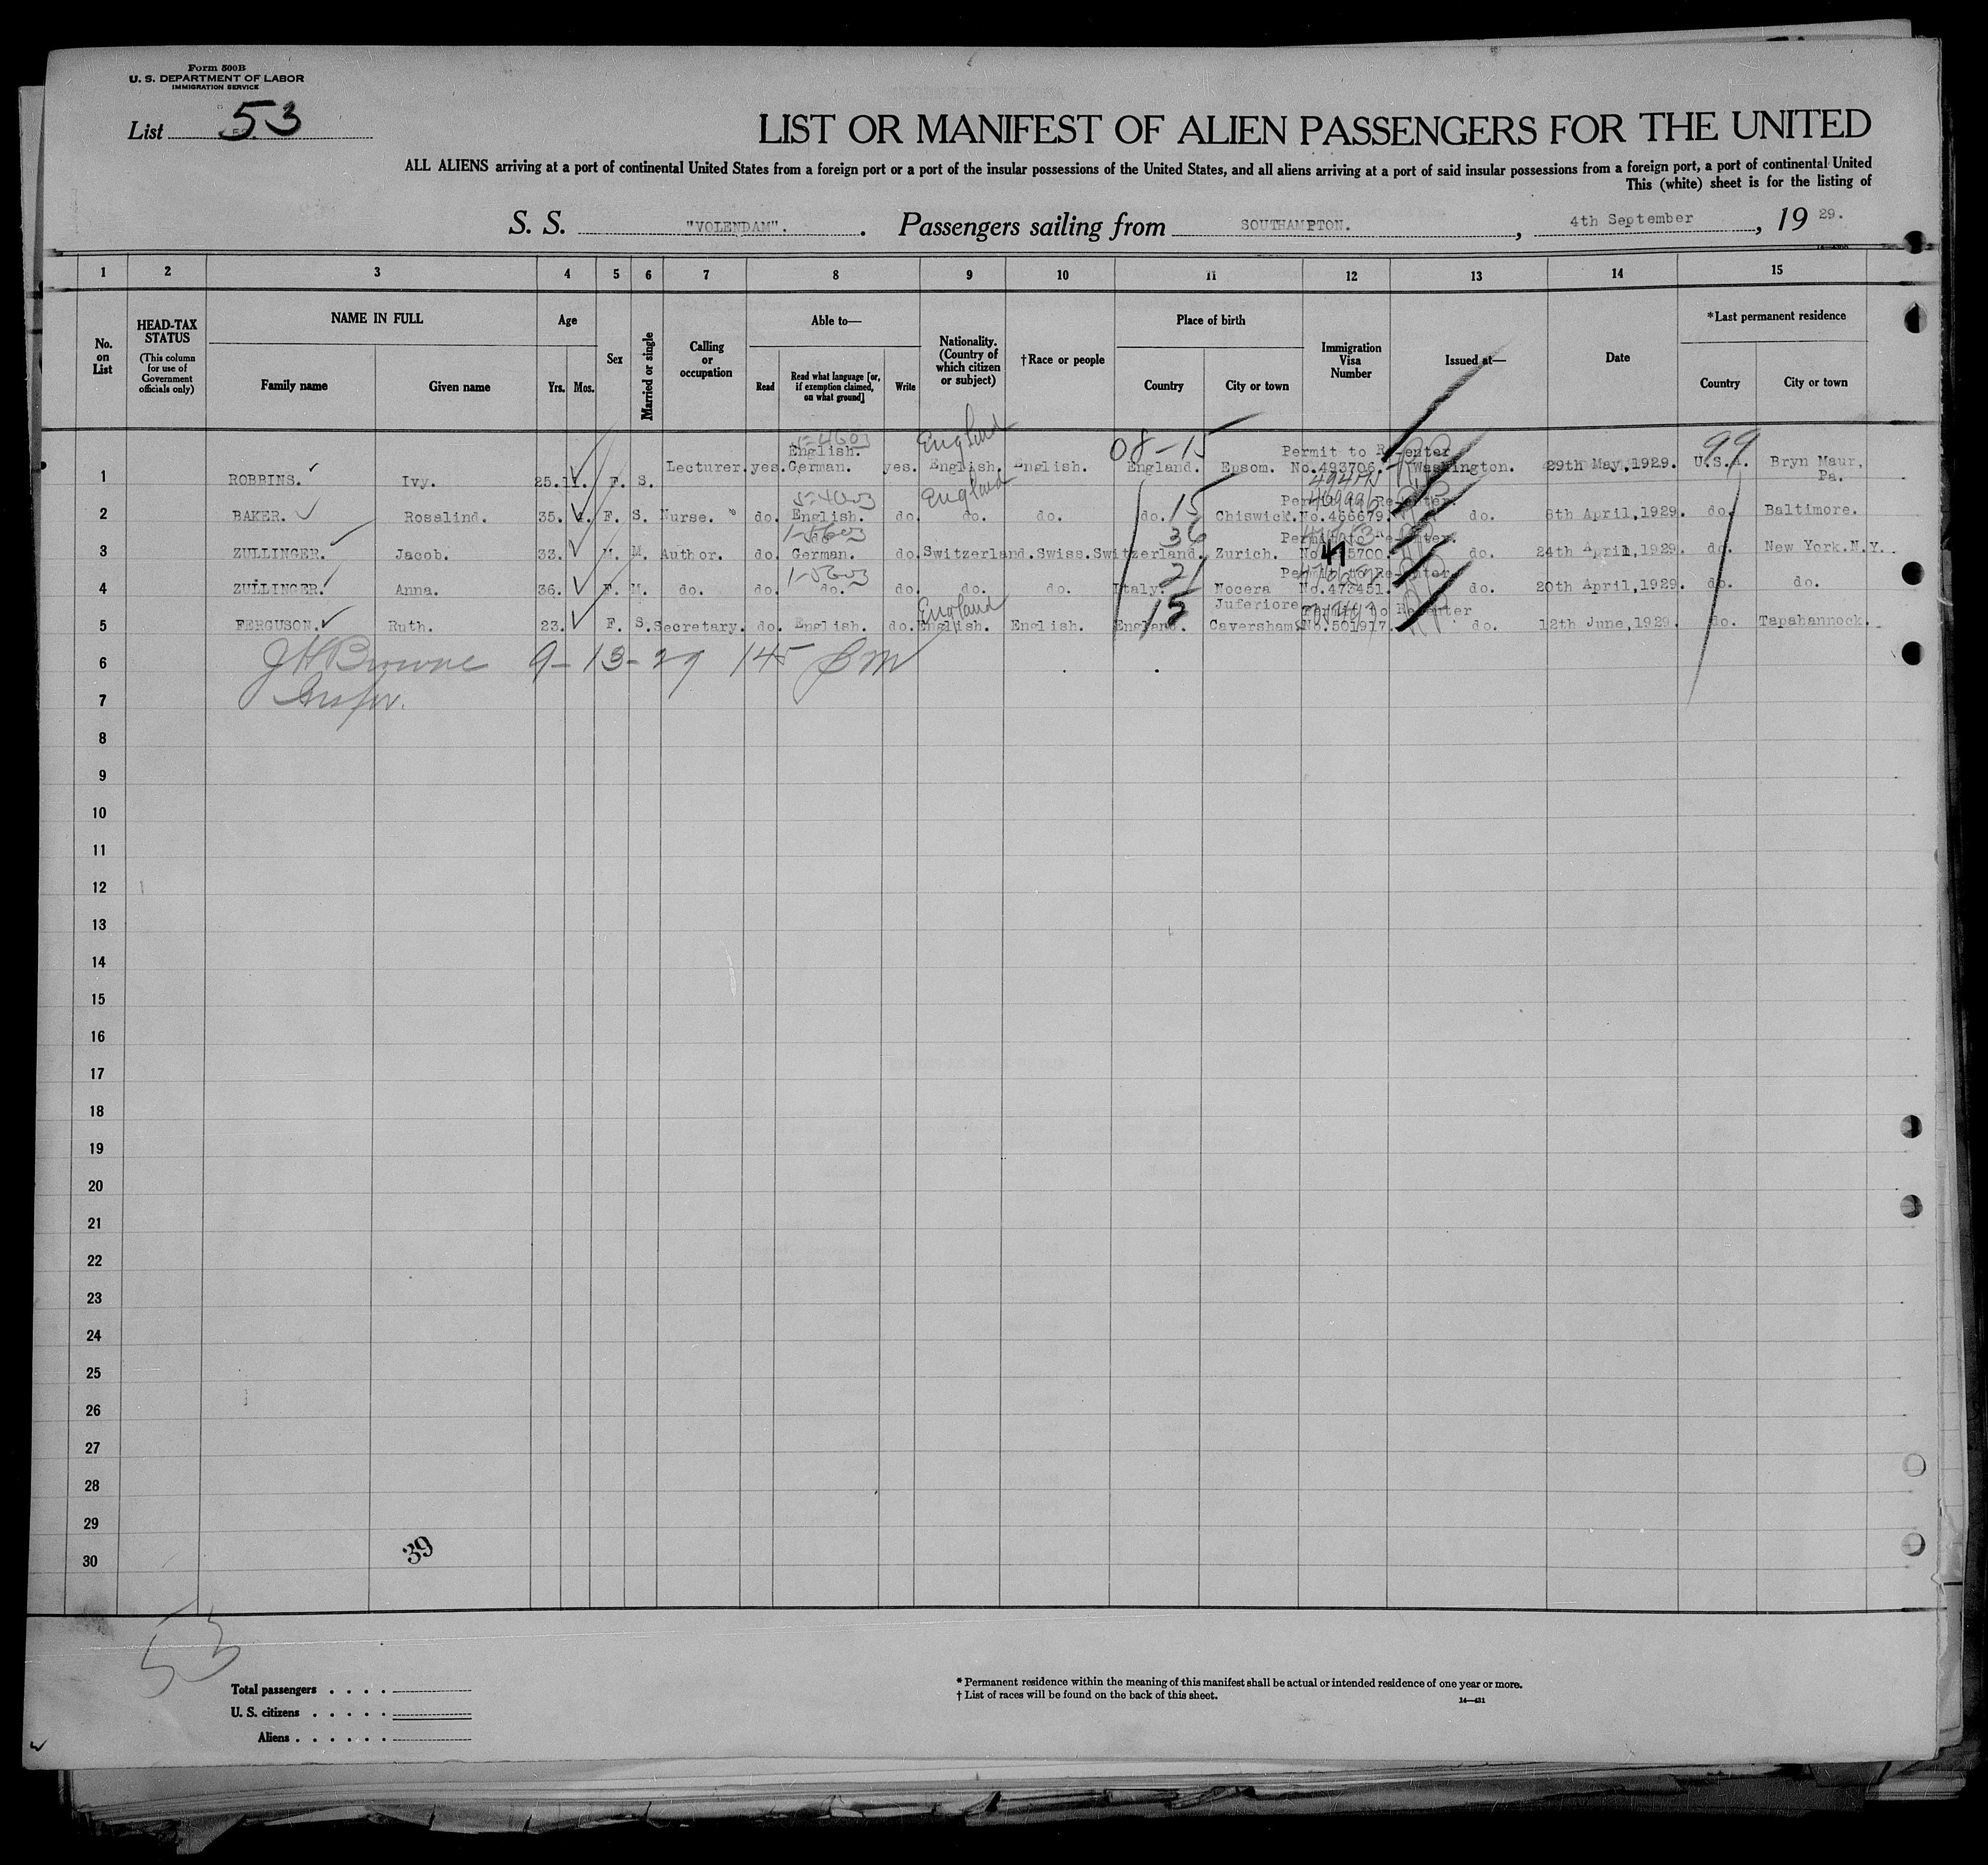 Form 500B
U. S. DEPARTMENT OF LABOR
IMMIGRATION SERVICE
List 53
LIST OR MANIFEST OF ALIEN PASSENGERS FOR THE UNITED
ALL ALIENS arriving at a port of continental United States from a foreign port or a port of the insular possessions of the United States, and all aliens arriving at a port of said insular possessions from a foreign port, a port of continental United
This (white) sheet is for the listing of
S. S. "VOLENDAM". Passengers sailing from SOUTHAMPTON. , 4th September , 19 29.
1 2 3 4 5 6 7 8 9 10 11 12 13 14 15
No. on List
HEAD-TAX STATUS (This column for use of Government officials only)
NAME IN FULL
Family name Given name
Age
Yrs. Mos.
Sex
Married or single
Calling or occupation
Able to—
Read Read what language [or, if exemption claimed, on what ground] Write
Nationality. (Country of which citizen or subject)
†Race or people
Place of birth
Country City or town
Immigration Visa Number
Issued at—
Date
*Last permanent residence
Country City or town
5-4603 England 08-15 Permit to Re-enter 99
1 ROBBINS. Ivy. 25. 11. F. S. Lecturer. yes. English. German. yes. English. English. England. Epsom. No.493706. Washington. 29th May,1929. U.S.A. Bryn Maur, Pa.
5-4603 England 15 Permit to Re-enter
2 BAKER. Rosalind. 35. F. S. Nurse. do. English. do. do. do. do. Chiswick. No.466679. do. 8th April,1929. do. Baltimore.
1-5603 36 Permit to Re-enter.
3 ZULLINGER. Jacob. 33. M. M. Author. do. German. do. Switzerland. Swiss. Switzerland. Zurich. No. 5700. do. 24th April,1929. do. New York.N.Y.
1-5603 21 Permit to Re-enter
4 ZULLINGER. Anna. 36. F. M. do. do. do. do. do. do. Italy. Nocera Juferiore No.473451. do. 20th April,1929. do. do.
England 15 Permit to Re-enter
5 FERGUSON. Ruth. 23. F. S. Secretary. do. English. do. English. English. England. Caversham. No.501917. do. 12th June,1929. do. Tapahannock.
6 JH Browne 9-13-29 145 PM
7 Inspr.
8
9
10
11
12
13
14
15
16
17
18
19
20
21
22
23
24
25
26
27
28
29
30
39
53
Total passengers . . . .
U. S. citizens . . . . .
Aliens . . . . . .
* Permanent residence within the meaning of this manifest shall be actual or intended residence of one year or more.
† List of races will be found on the back of this sheet.
14—431